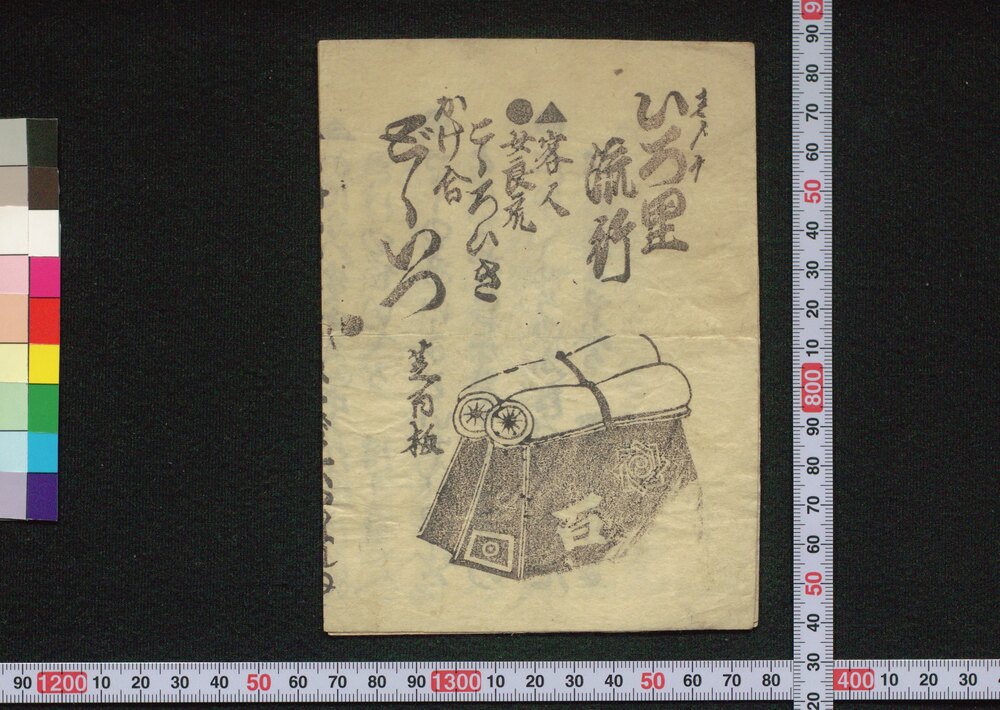 いろ里
流行
▲客人
●女良衆
こゝろいき
かけ合
どゞいつ
芝百板
百
90 1200 10 20 30 40 50 60 70 80 90 1300 10 20 30 40 50 60 70 80 400 10 20 30
90 80 70 60 50 40 30 20 10 800 90 80 70 60 50 40 30 20